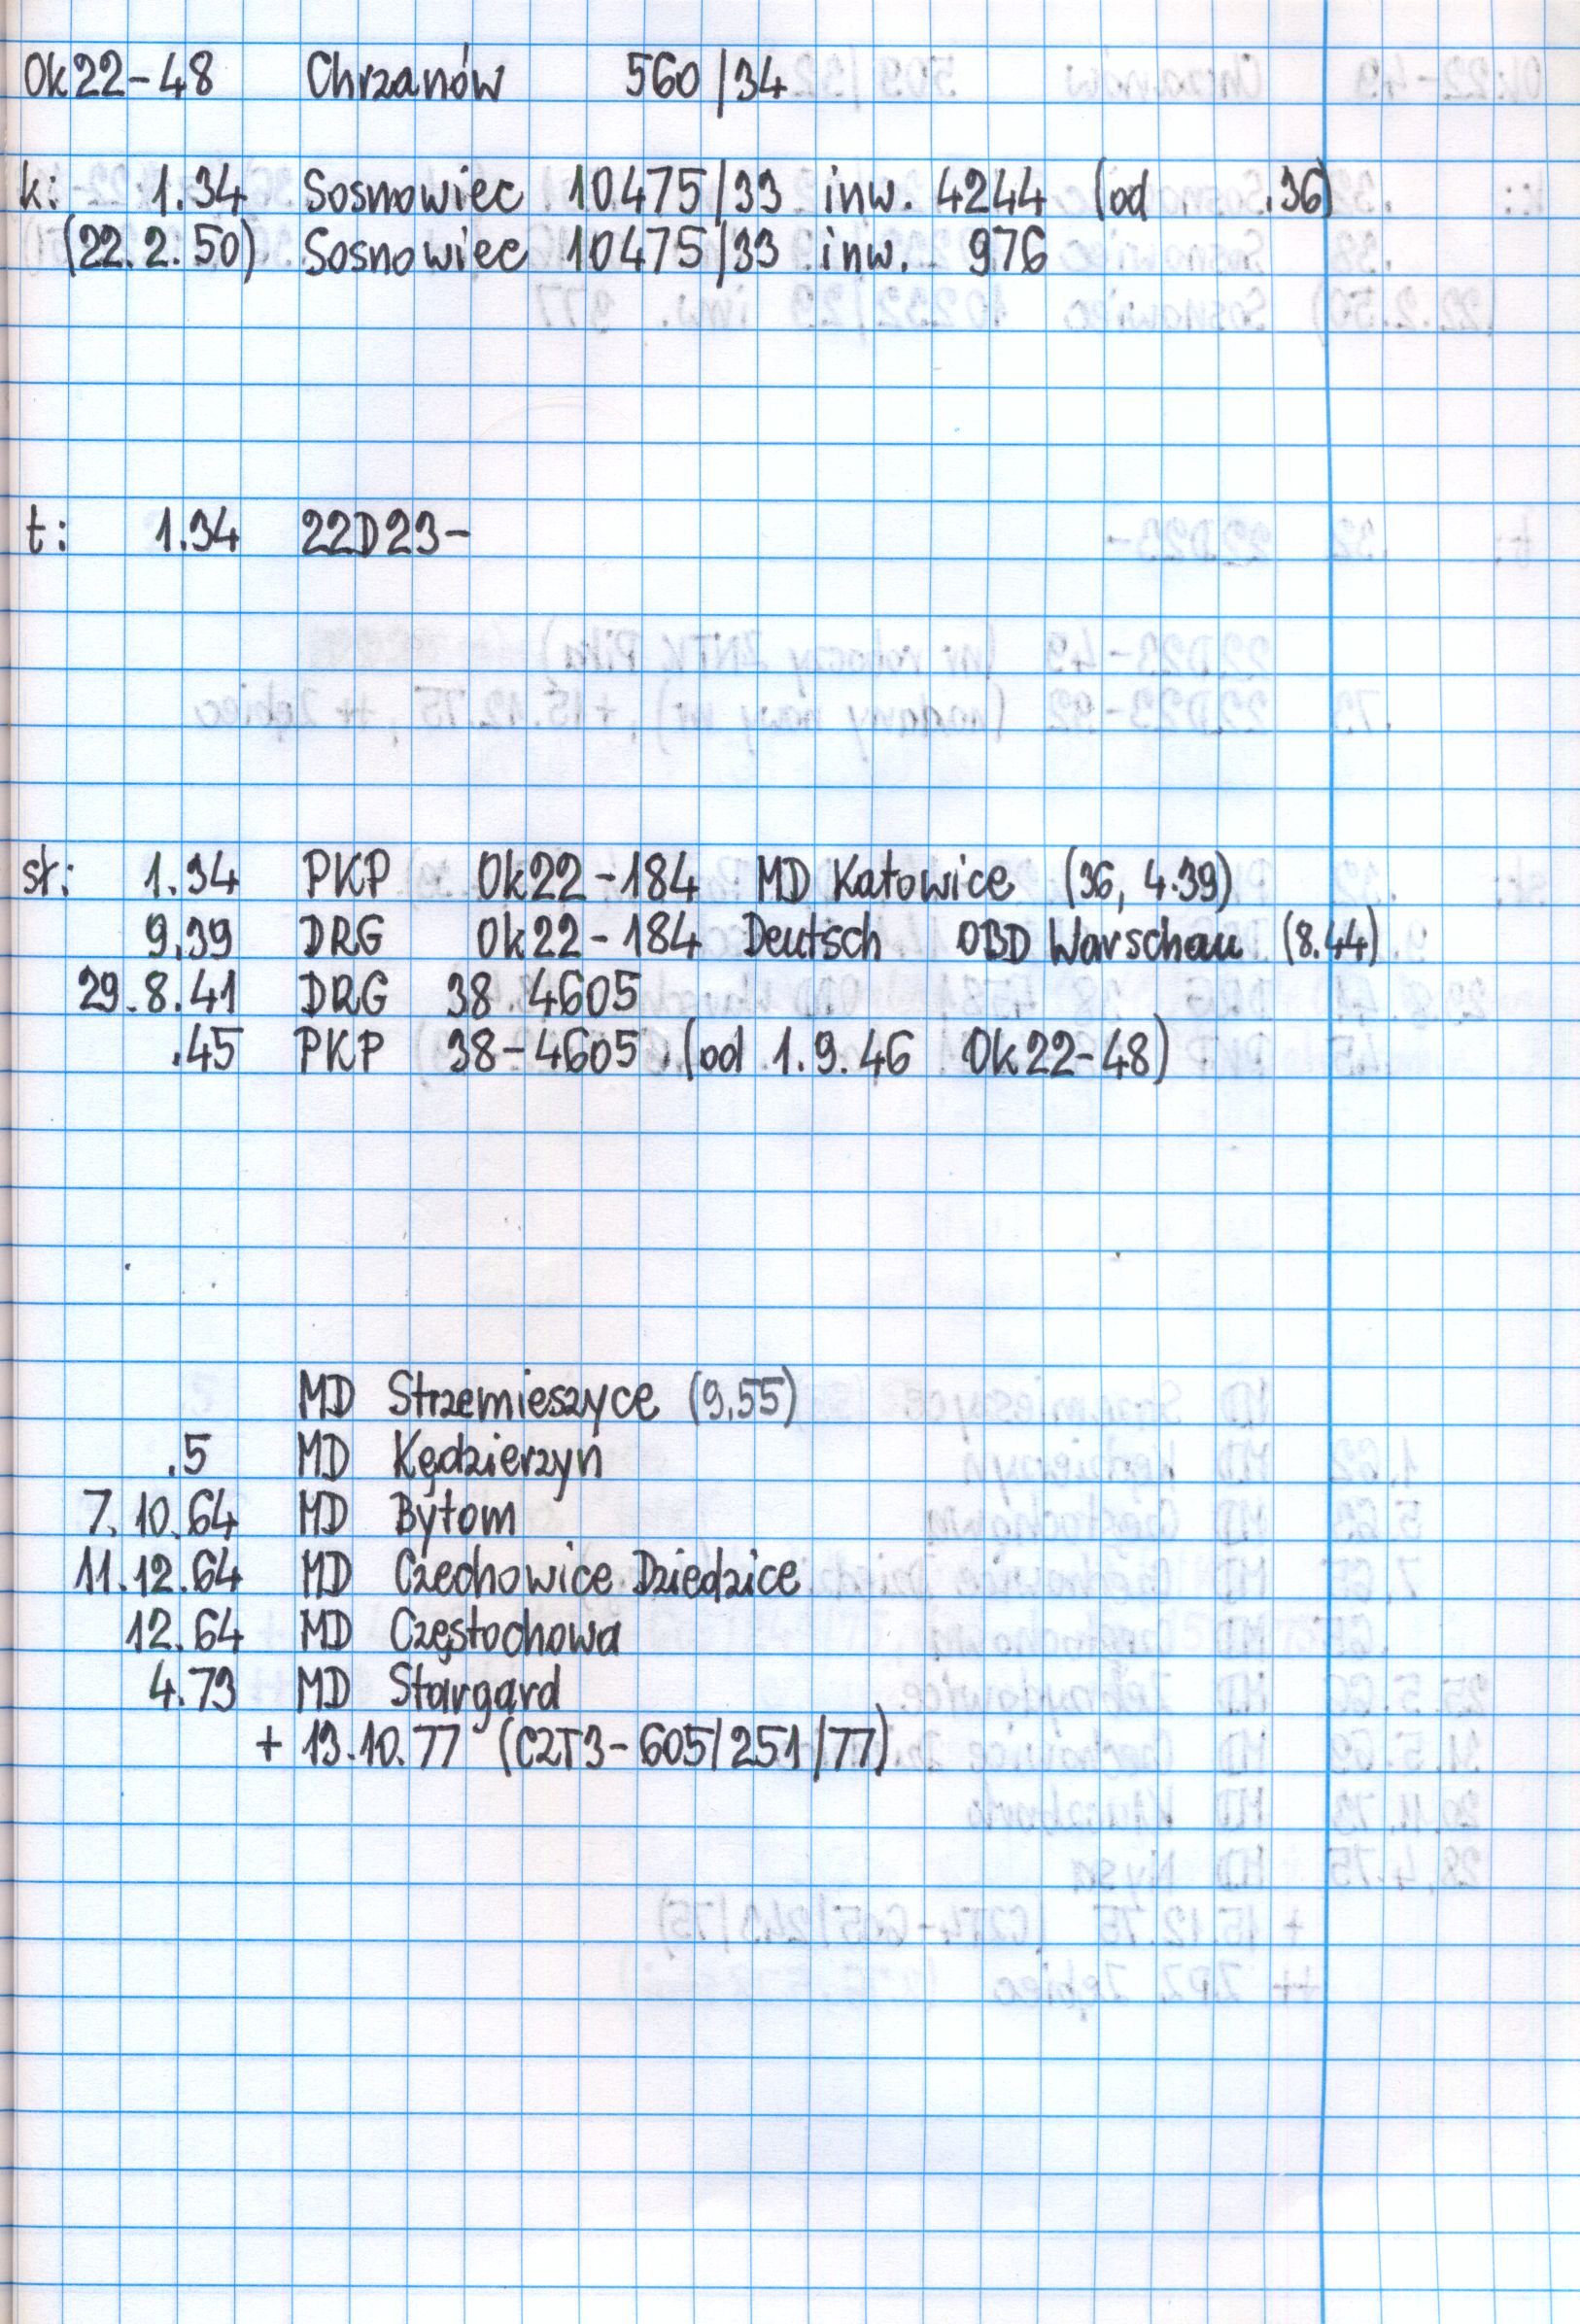 Ok22-48 Chrzanów 560/34
k: 1.34 Sosnowiec 10475/33 inw. 4244 (od .36)
(22.2.50) Sosnowiec 10475/33 inw. 976
t: 1.34 22D23-
st: 1.34 PKP Ok22-184 MD Katowice (36, 4.39)
9.39 DRG Ok22-184 Deutsch OBD Warschau (8.44)
29.8.41 DRG 38 4605
.45 PKP 38-4605 (od 1.9.46 Ok22-48)
MD Strzemieszyce (9.55)
.5 MD Kędzierzyn
7.10.64 MD Bytom
11.12.64 MD Czechowice Dziedzice
12.64 MD Częstochowa
4.73 MD Stargard
+ 13.10.77 (C2T3-605/251/77)